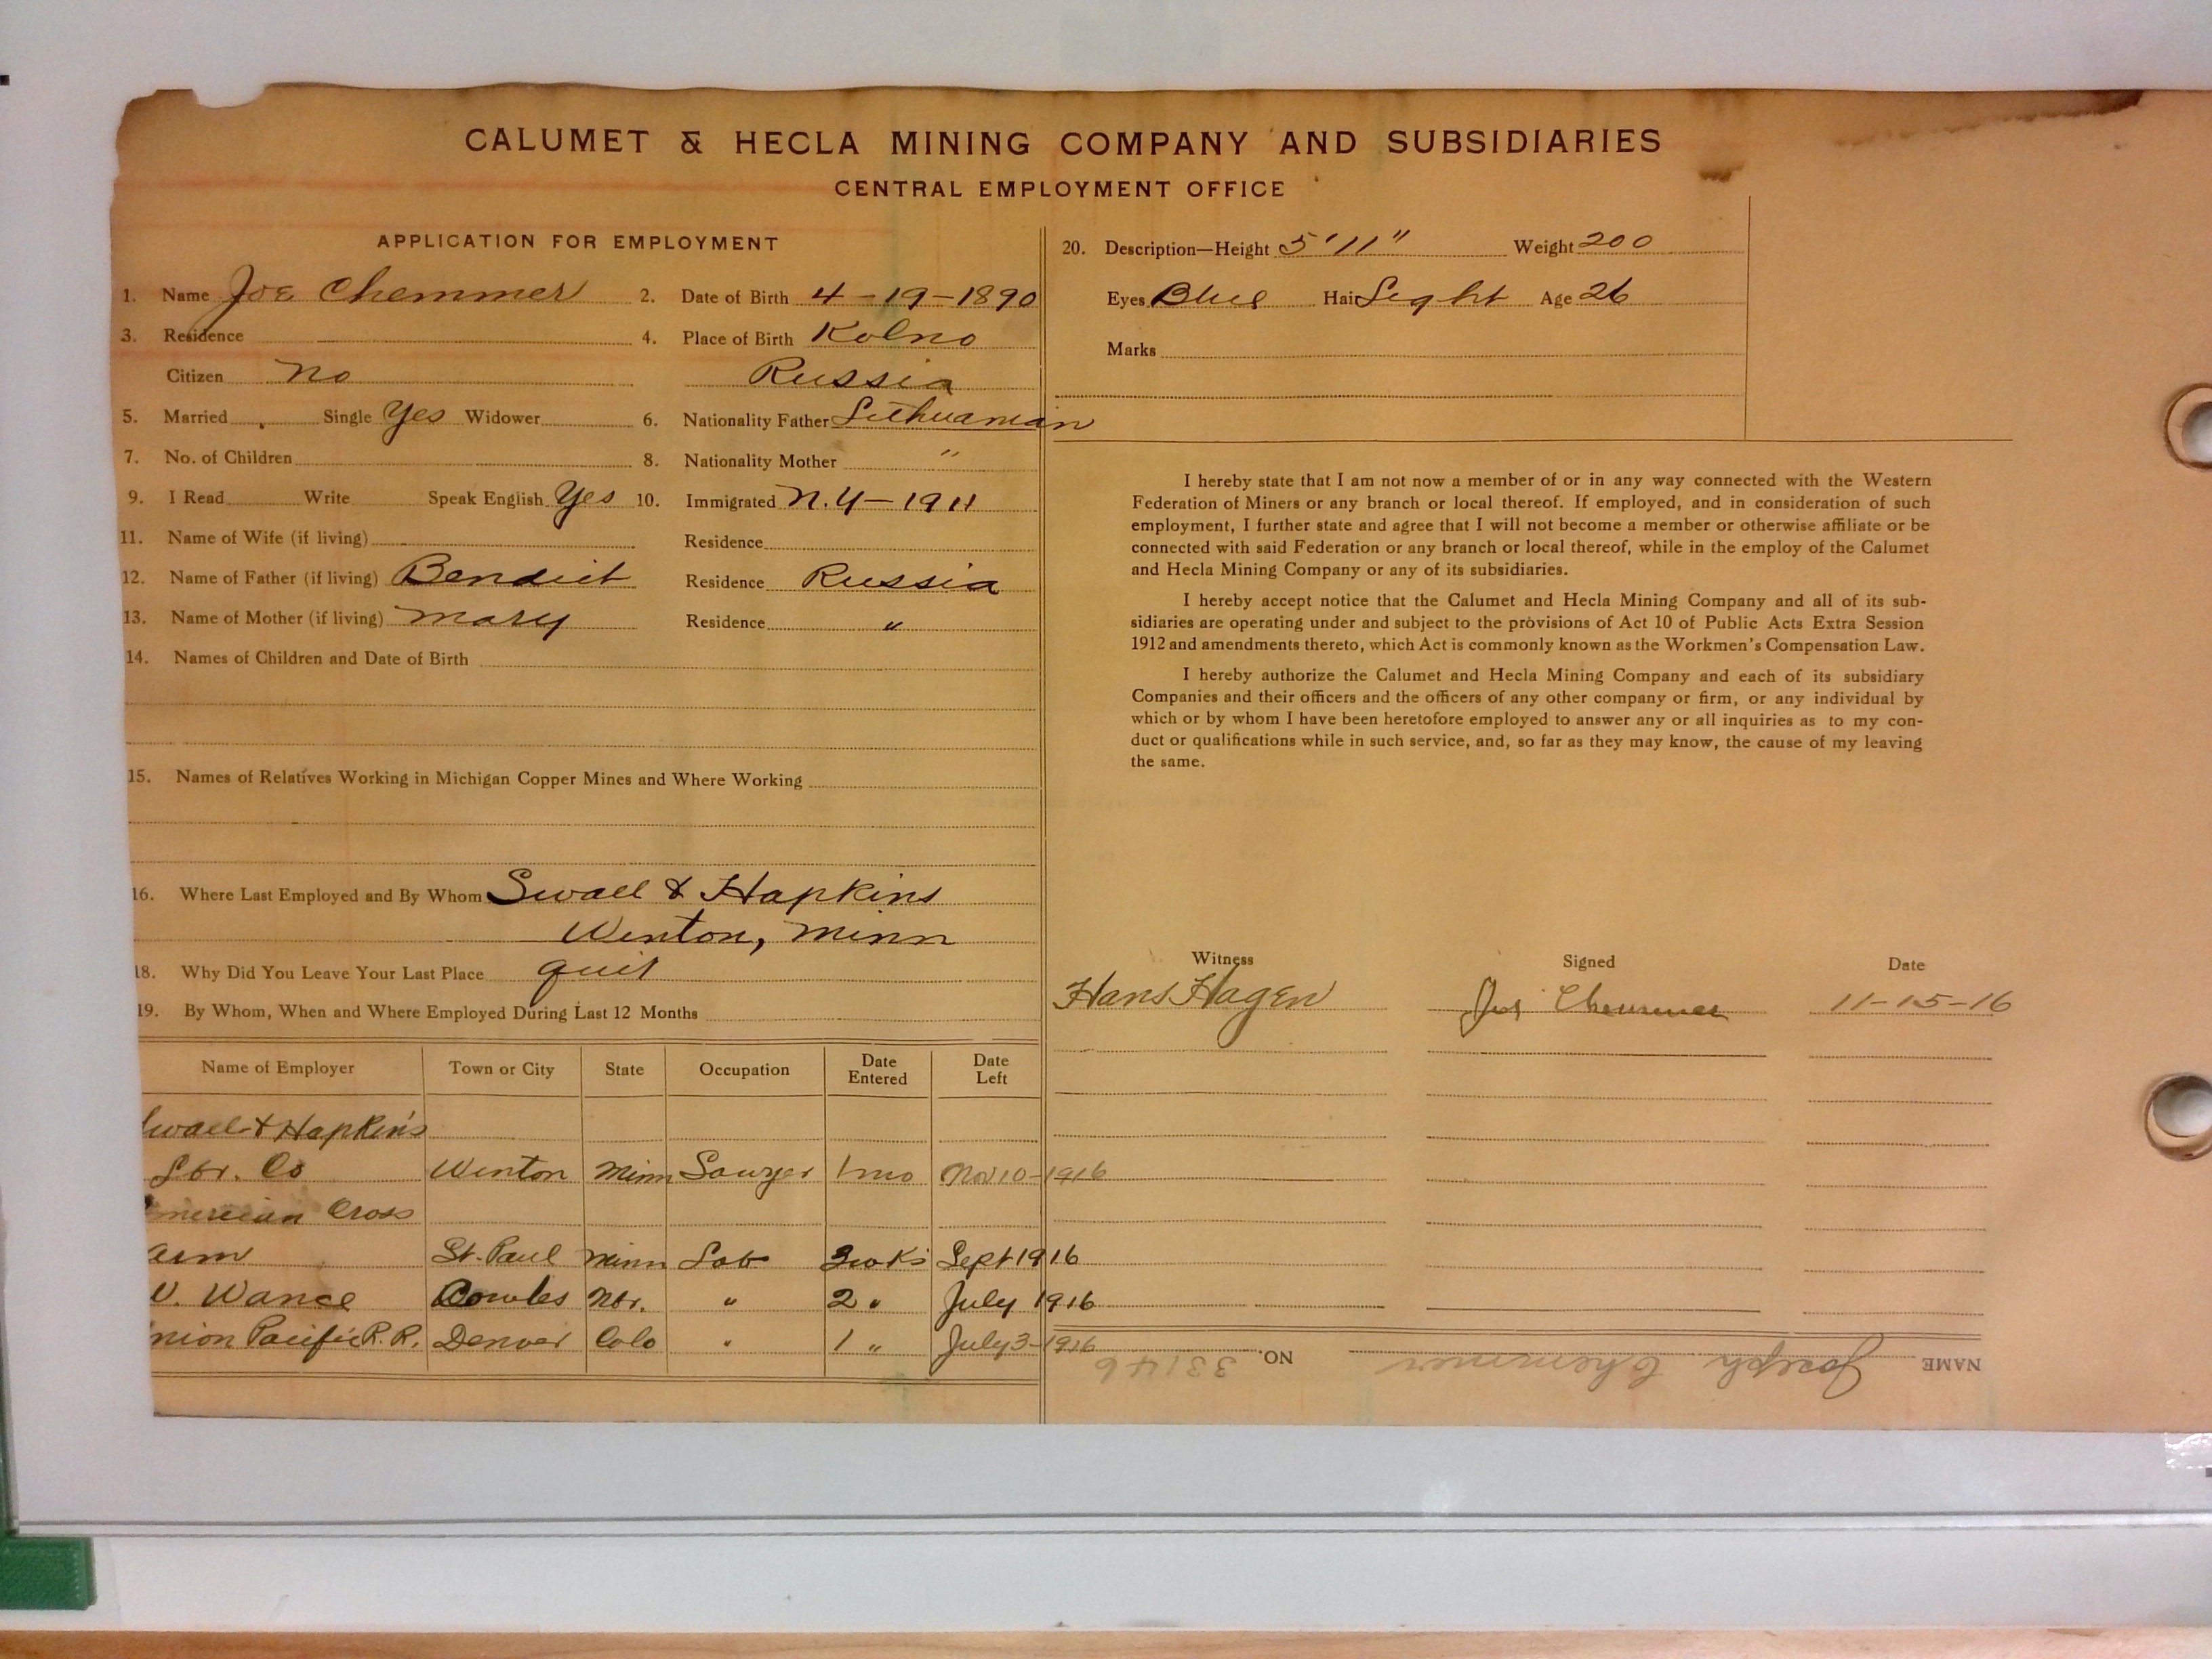 CALUMET & HECLA MINING COMPANY AND SUBSIDIARIES
CENTRAL EMPLOYMENT OFFICE
APPLICATION FOR EMPLOYMENT
1. Name Joe Chemmer 2. Date of Birth 4-19-1890
3. Residence 4. Place of Birth Kolno
Citizen no Russia
5. Married Single Yes Widower 6. Nationality Father Lithuanian
7. No. of Children 8. Nationality Mother "
9. I Read Write Speak English Yes 10. Immigrated N.Y-1911
11. Name of Wife (if living) Residence
12. Name of Father (if living) Bendict Residence Russia
13. Name of Mother (if living) Mary Residence "
14. Names of Children and Date of Birth
15. Names of Relatives Working in Michigan Copper Mines and Where Working
16. Where Last Employed and By Whom Swall & Hapkins
Winton, Minn
18. Why Did You Leave Your Last Place quit
19. By Whom, When and Where Employed During Last 12 Months
Name of Employer Town or City State Occupation Date Entered Date Left
Swall & Hapkins
Lbr. Co Winton Minn Sawyer 1 mo Nov 10-1916
American Cross
arm St. Paul Minn Lab 3 wks Sept 1916
V. Wance Cowles Nbr. " 2 " July 1916
nion Pacific R.R. Denver Colo " 1 " July 3-1916
20. Description—Height 5'11" Weight 200
Eyes Blue Hai Light Age 26
Marks
I hereby state that I am not now a member of or in any way connected with the Western
Federation of Miners or any branch or local thereof. If employed, and in consideration of such
employment, I further state and agree that I will not become a member or otherwise affiliate or be
connected with said Federation or any branch or local thereof, while in the employ of the Calumet
and Hecla Mining Company or any of its subsidiaries.
I hereby accept notice that the Calumet and Hecla Mining Company and all of its sub-
sidiaries are operating under and subject to the provisions of Act 10 of Public Acts Extra Session
1912 and amendments thereto, which Act is commonly known as the Workmen's Compensation Law.
I hereby authorize the Calumet and Hecla Mining Company and each of its subsidiary
Companies and their officers and the officers of any other company or firm, or any individual by
which or by whom I have been heretofore employed to answer any or all inquiries as to my con-
duct or qualifications while in such service, and, so far as they may know, the cause of my leaving
the same.
Witness Signed Date
Hans Hagen Joe Chemmer 11-15-16
NAME Joseph Chemmer NO. 33146